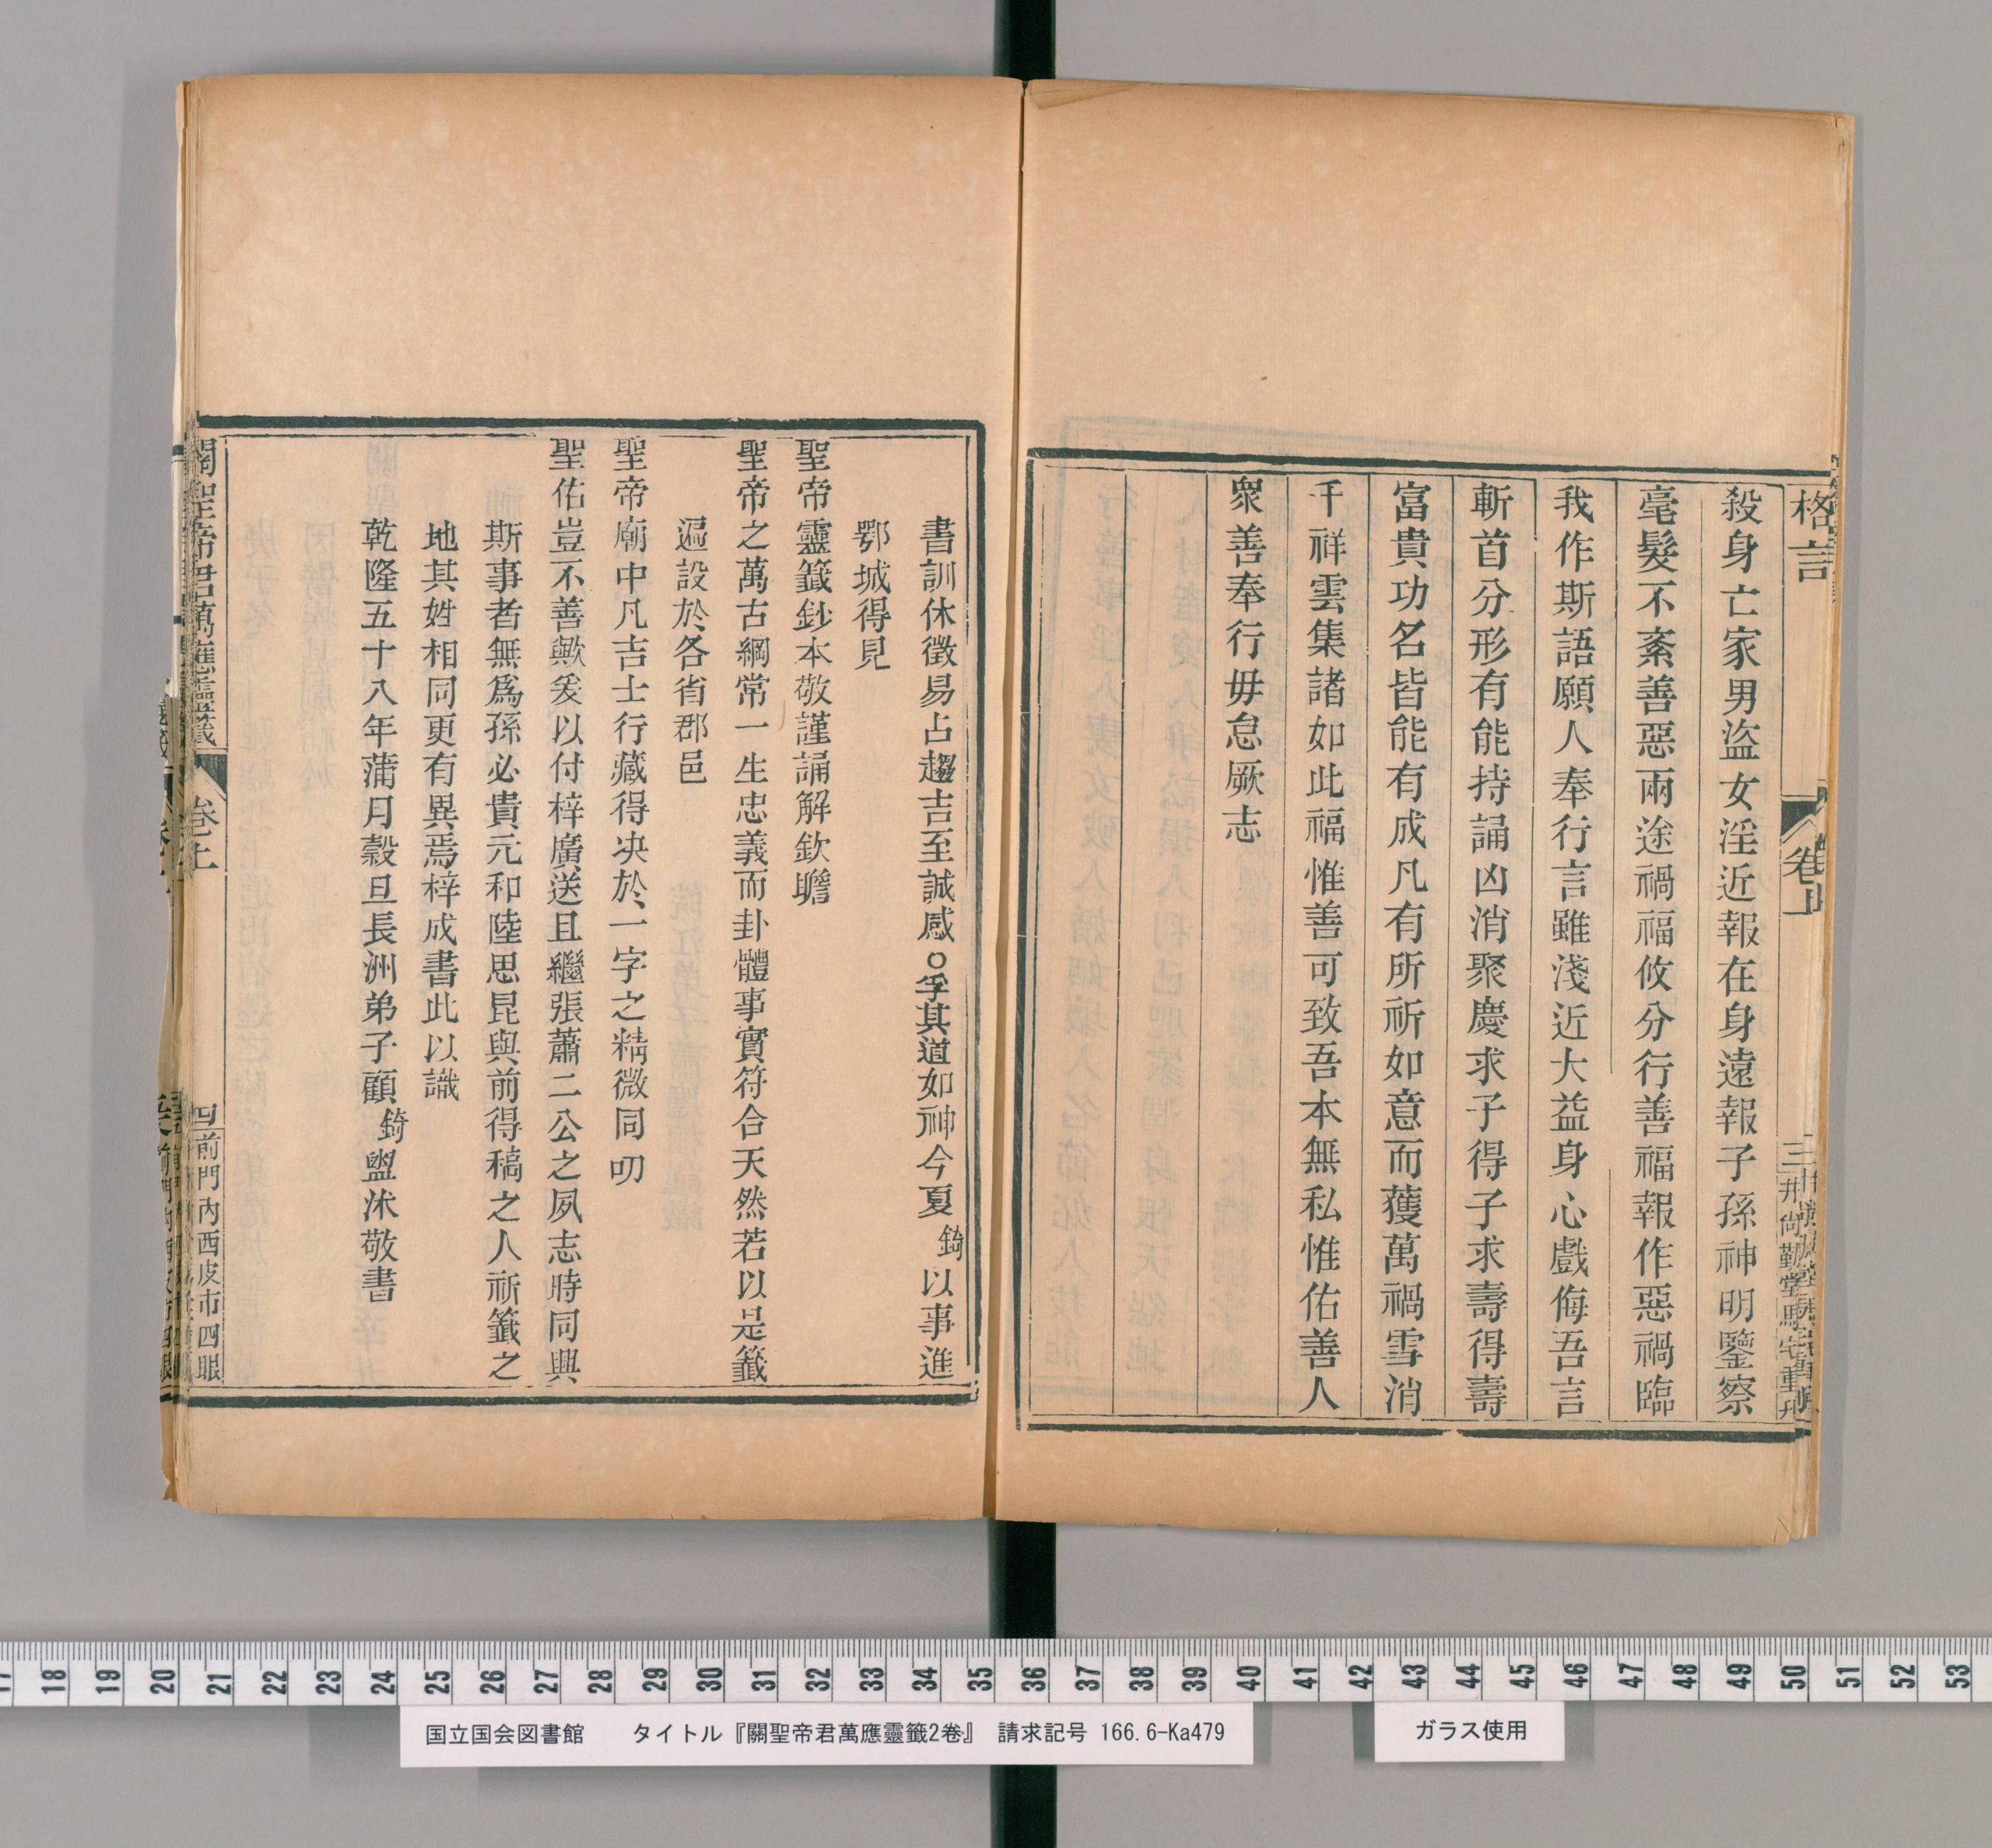 格言
卷上
三
尙勤堂馬宅重刋
殺身亡家男盜女淫近報在身遠報子孫神明鑒察
毫髮不紊善惡兩途禍福攸分行善福報作惡禍臨
我作斯語願人奉行言雖淺近大益身心戲侮吾言
斬首分形有能持誦凶消聚慶求子得子求壽得壽
富貴功名皆能有成凡有所祈如意而獲萬禍雪消
千祥雲集諸如此福惟善可致吾本無私惟佑善人
衆善奉行毋怠厥志
書訓休徵易占趨吉至誠感○孚其道如神今夏錡以事進
鄂城得見
聖帝靈籤鈔本敬謹誦解欽瞻
聖帝之萬古綱常一生忠義而卦體事實符合天然若以是籤
遍設於各省郡邑
聖帝廟中凡吉士行藏得决於一字之精微同叨
聖佑豈不善歟爰以付梓廣送且繼張蕭二公之夙志時同興
斯事者無爲孫必貴元和陸思昆與前得稿之人祈籤之
地其姓相同更有異焉梓成書此以識
乾隆五十八年蒲月穀旦長洲弟子顧錡盥沐敬書
關聖帝君萬應靈籤
卷上
四
前門內西皮市四眼
17 18 19 20 21 22 23 24 25 26 27 28 29 30 31 32 33 34 35 36 37 38 39 40 41 42 43 44 45 46 47 48 49 50 51 52 53
国立国会図書館 タイトル『關聖帝君萬應靈籤2卷』 請求記号 166.6-Ka479
ガラス使用